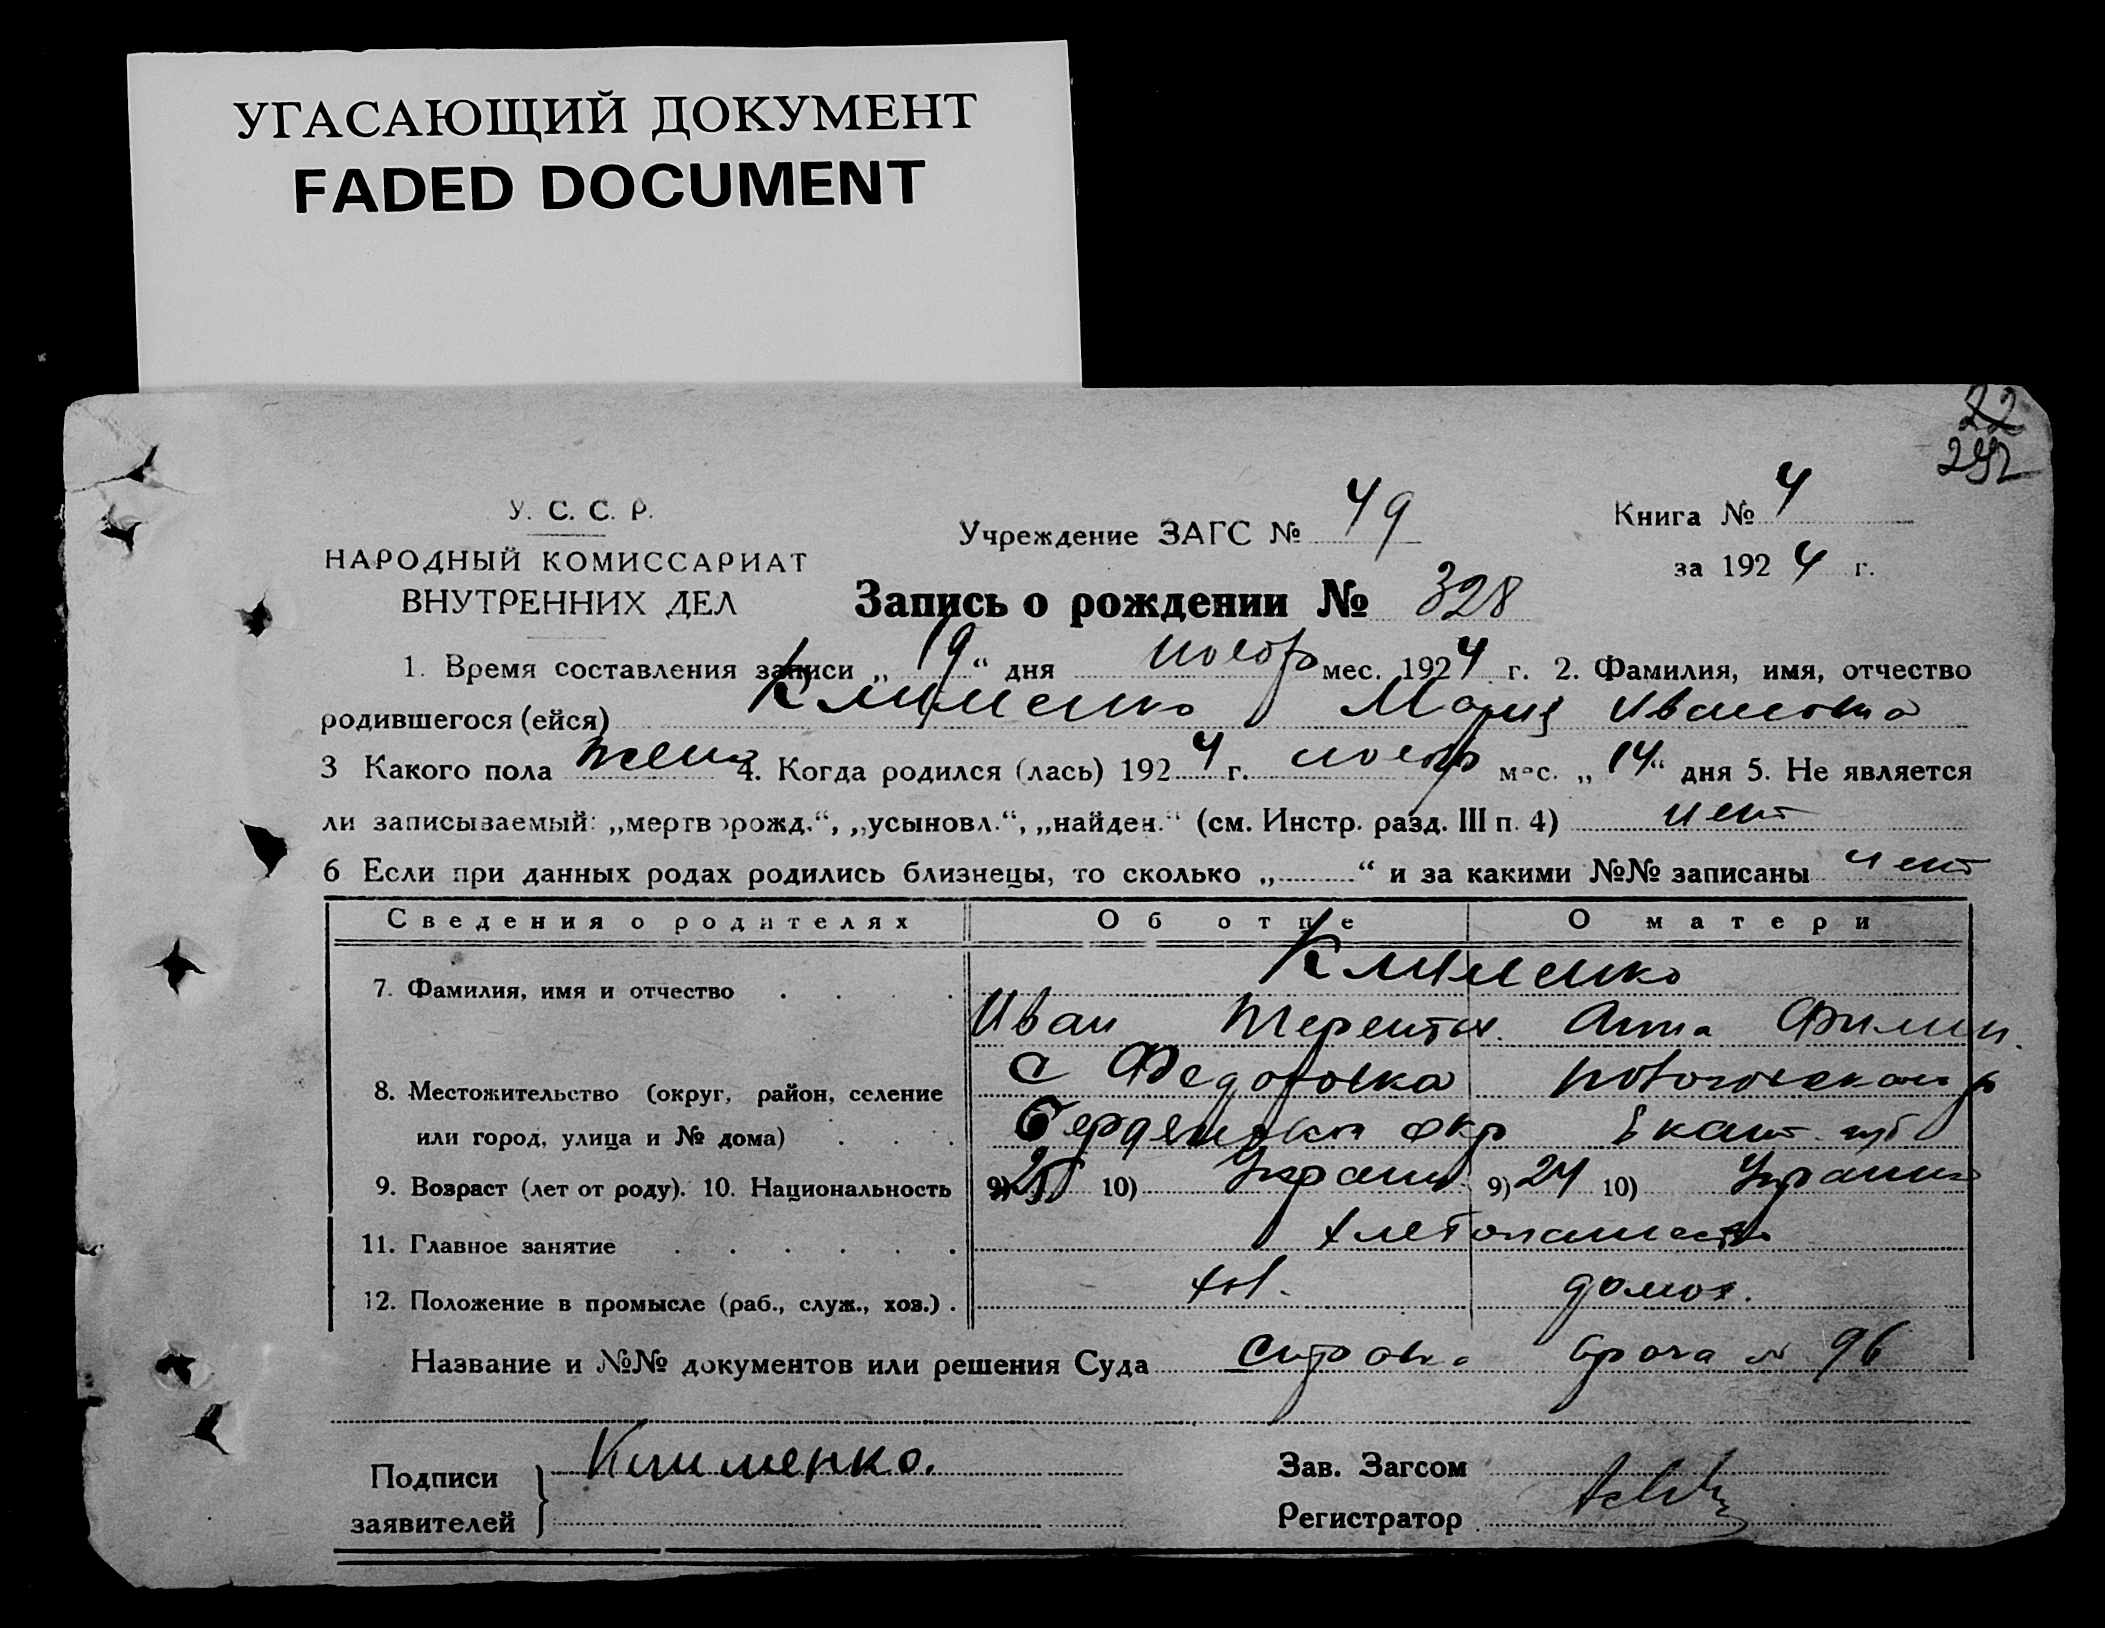 УГАСАЮЩИЙ ДОКУМЕНТ
FADED DOCUMENT
22
292
У. С. С. Р.
НАРОДНЫЙ КОМИССАРИАТ
ВНУТРЕННИХ ДЕЛ
Учреждение ЗАГС № 49
Книга № 4
за 1924 г.
Запись о рождении № 328
1. Время составления записи „19“ дня ноябр мес. 1924 г. 2. Фамилия, имя, отчество
родившегося (ейся) Клименко Мария Ивановна
3 Какого пола жен 4. Когда родился (лась) 1924 г. ноябр мес. „14“ дня 5. Не является
ли записываемый: „мертворожд.“, „усыновл.“, „найден.“ (см. Инстр. разд. III п. 4) нет
6 Если при данных родах родились близнецы, то сколько „..........“ и за какими №№ записаны нет
Сведения о родителях Об отце О матери
7. Фамилия, имя и отчество Клименко
Иван Терентьи. Анна Филип.
8. Местожительство (округ, район, селение с Федоровка
или город, улица и № дома) Бердянский окр Екат. губ
9. Возраст (лет от роду). 10. Национальность 9) 25 10) Украин 9) 24 10) Украин
11. Главное занятие хлебопашество
12. Положение в промысле (раб., служ., хоз.) . хоз. домох.
Название и №№ документов или решения Суда справка врача № 96
Подписи
заявителей
Клименко.
Зав. Загсом
Регистратор